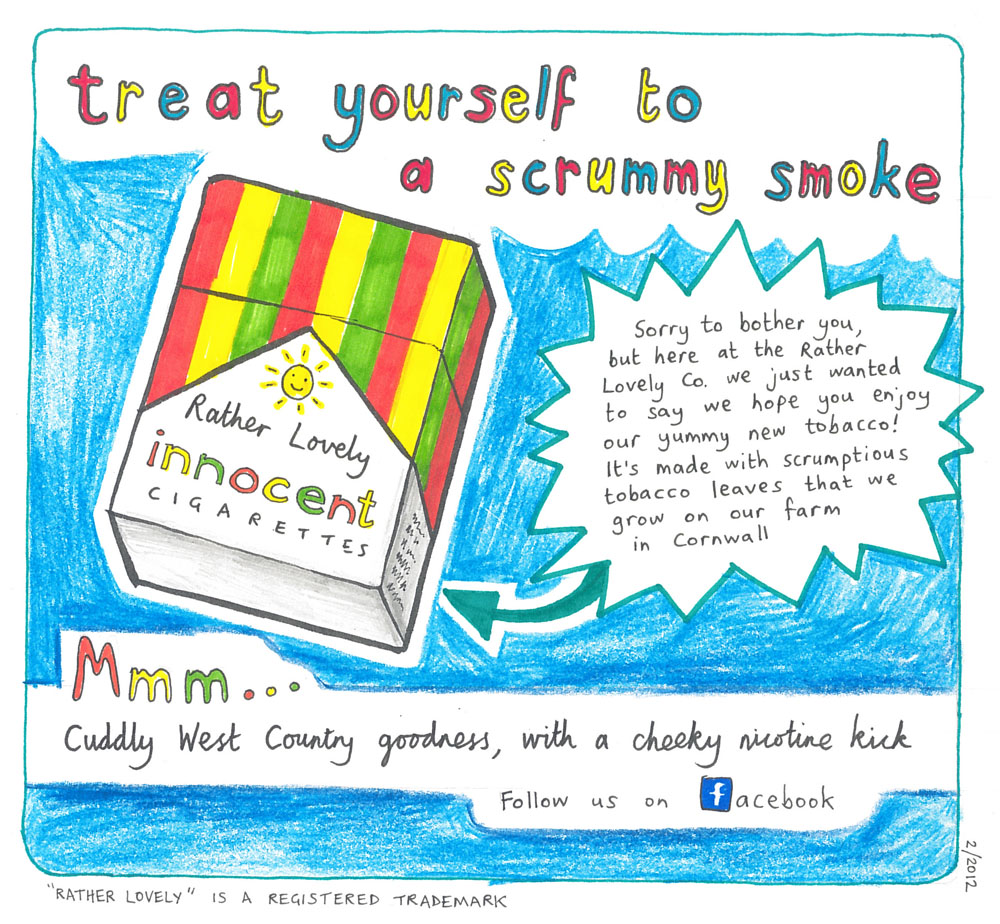 treat yourself to
a scrummy smoke
Rather Lovely
innocent
CIGARETTES
Sorry to bother you,
but here at the Rather
Lovely Co. we just wanted
to say we hope you enjoy
our yummy new tobacco!
It's made with scrumptious
tobacco leaves that we
grow on our farm
in Cornwall
Mmm...
Cuddly West Country goodness, with a cheeky nicotine kick
Follow us on facebook
2/2012
"RATHER LOVELY" IS A REGISTERED TRADEMARK